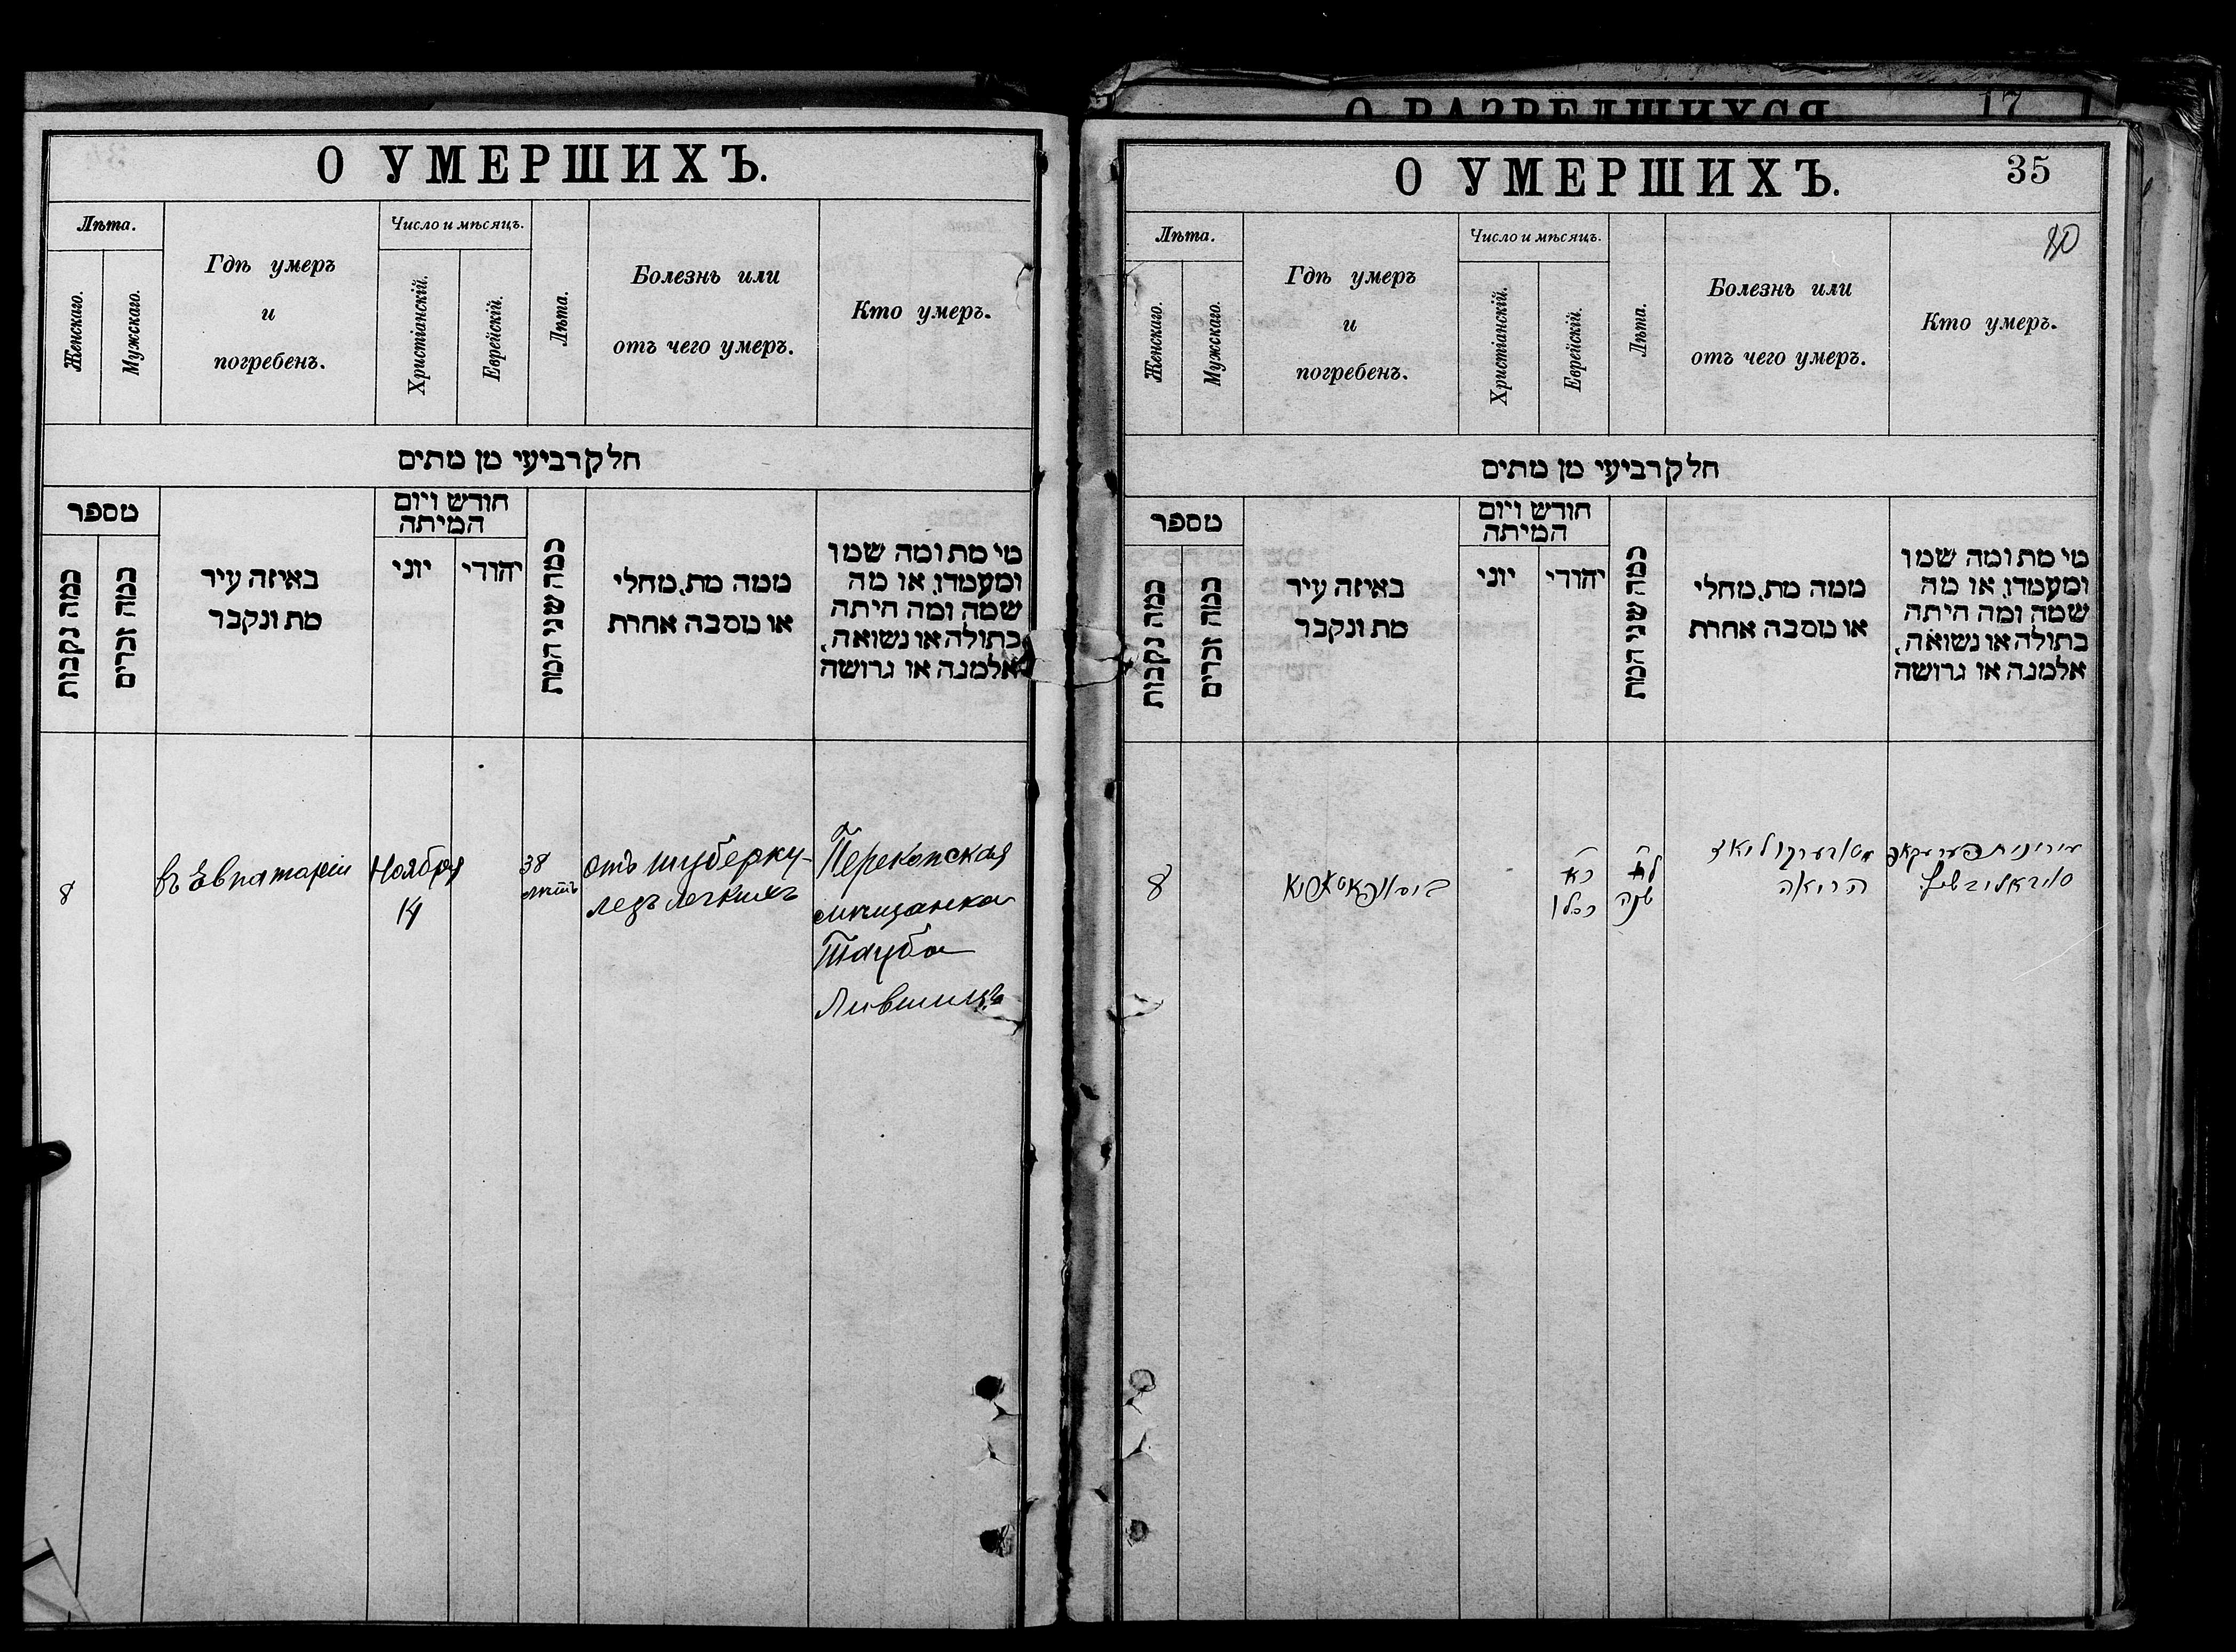 О УМЕРШИХЪ.
Лѣта.
Женскаго.
Мужскаго.
Гдѣ умеръ
и
погребенъ.
Число и мѣсяцъ.
Христіанскій.
Еврейскій.
Лѣта.
Болезнь или
отъ чего умеръ.
Кто умеръ.
חלק רביעי מן מתים
מספר
כמה נקבות
כמה זכרים
באיזה עיר
מת ונקבר
חודש ויום
המיתה
יוני
יהודי
כמה שני המת
ממה מת, מחלי
או מסבה אחרת
מי מת ומה שמו
ומעמדו, או מה
שמה ומה היתה
בתולה או נשואה,
אלמנה או גרושה
8
въ Евпаторіи
Ноября
14
38
лѣтъ
отъ туберку-
леза легкихъ
Перекопская
мѣщанка
Тауба
Лившицъ
О РАЗВЕДШИХСЯ
17
О УМЕРШИХЪ.
35
80
Лѣта.
Женскаго.
Мужскаго.
Гдѣ умеръ
и
погребенъ.
Число и мѣсяцъ.
Христіанскій.
Еврейскій.
Лѣта.
Болезнь или
отъ чего умеръ.
Кто умеръ.
חלק רביעי מן מתים
מספר
כמה נקבות
כמה זכרים
באיזה עיר
מת ונקבר
חודש ויום
המיתה
יוני
יהודי
כמה שני המת
ממה מת, מחלי
או מסבה אחרת
מי מת ומה שמו
ומעמדו, או מה
שמה ומה היתה
בתולה או נשואה,
אלמנה או גרושה
8
כא
כסלו
לח
שנה
הריאה